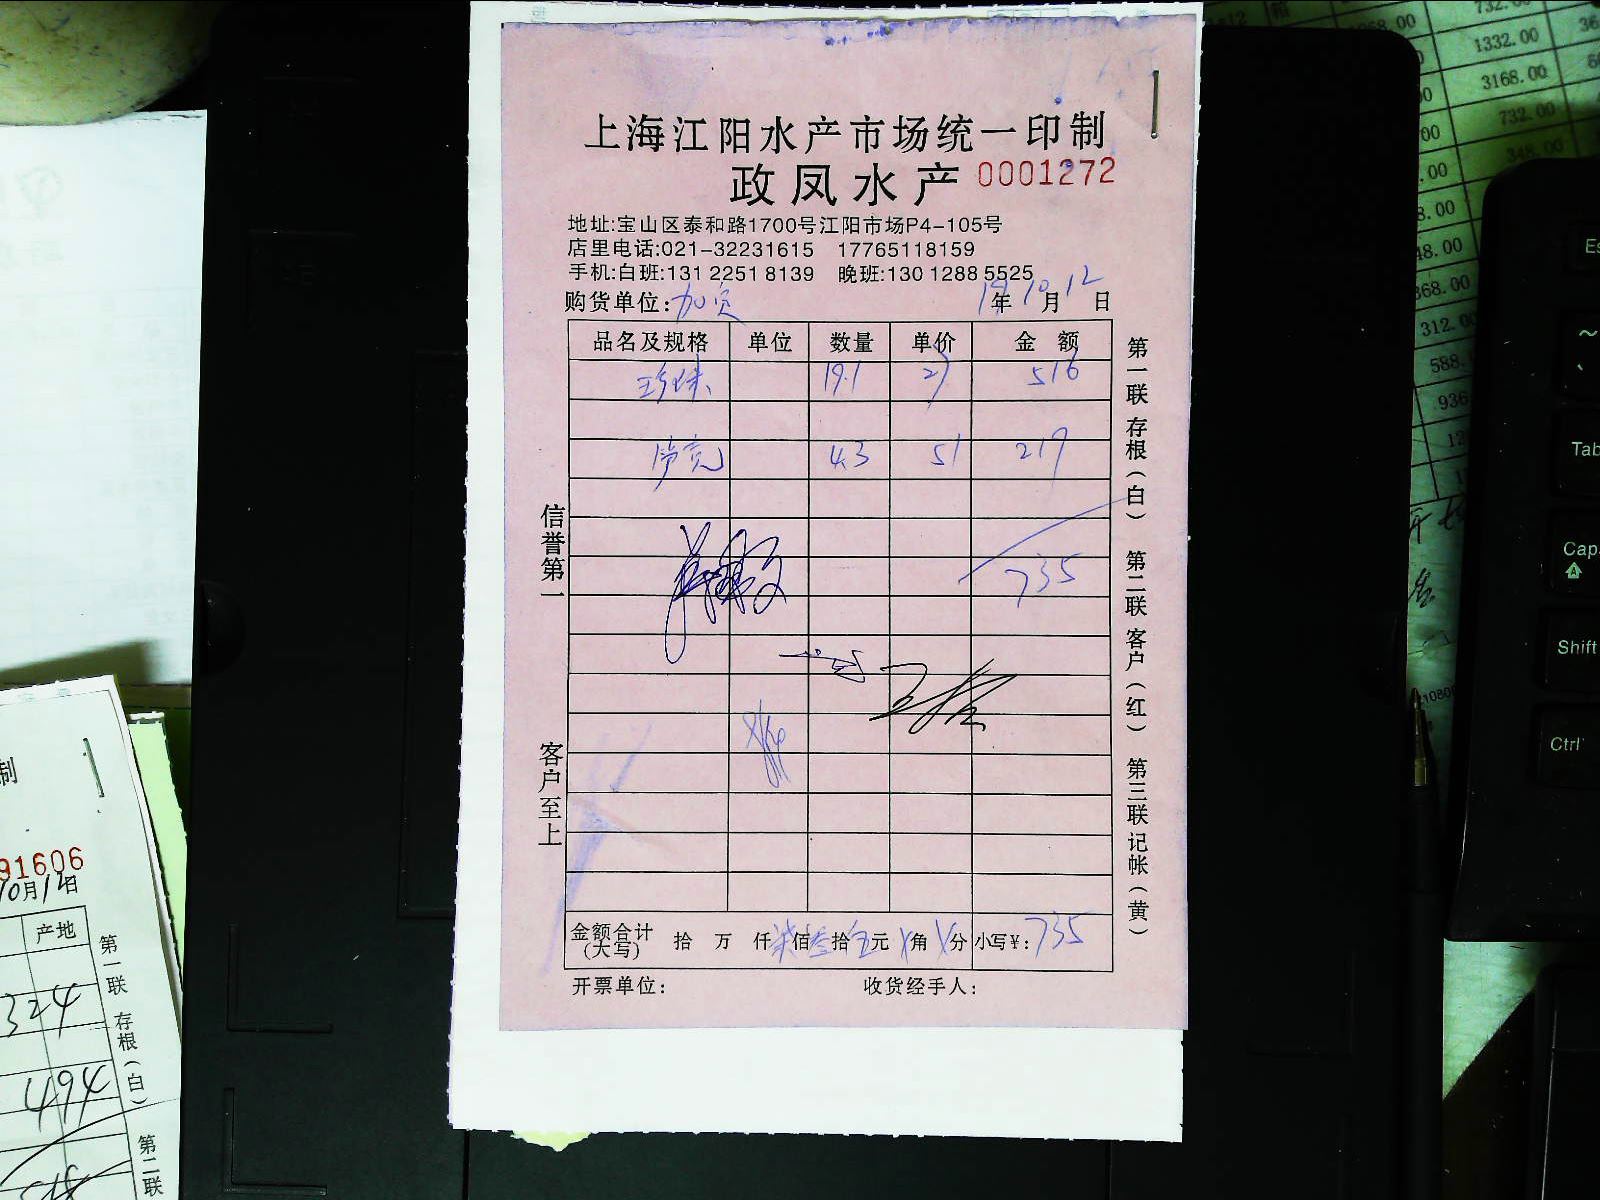 上海江阳水产市场统一印制
政凤水产 0001272
地址:宝山区泰和路1700号江阳市场P4-105号
店里电话:021-32231615 17765118159
手机:白班:131 2251 8139 晚班:130 1288 5525
购货单位: 19年10月12日
品名及规格 单位 数量 单价 金 额
珍珠 19.1 27 516
4.3 51 219
735
信誉第一
客户至上
第一联 存根(白) 第二联 客户(红) 第三联 记帐(黄)
金额合计(大写) 拾 万 仟柒佰叁拾伍元 角 分 小写¥: 735
开票单位: 收货经手人:
制
91606
10月12日
产地
324
494
第一联 存根(白)
第二联
1332.00
3168.00
732.00
348.00
368.00
312.00
588.
936
Tab
Caps
Shift
Ctrl